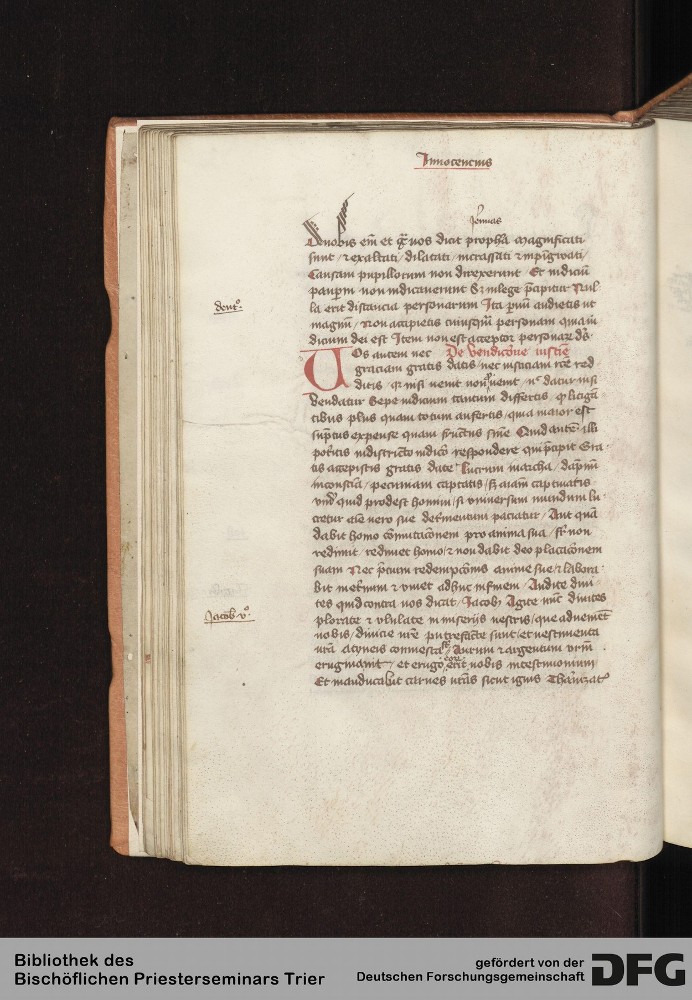 Innocencius
Jeremias
De vobis em et contra vos dicit propheta magnificati
sunt / et exaltati / dilatati / incrassati et impingwati /
Causam pupillorum non direxerunt Et iudiciu
pauperum non iudicaverunt Et in lege precipitur Nul
la erit distancia personarum Ita parvum audietis ut
deutro.
magnum / Non accipietis cuiusquam personam quoniam
dicium dei est Item non est acceptor personarum deus
Vos autem nec De vendicione iusticie
graciam gratis datis / nec iusticiam rite red
ditis / quia nisi venit non venit / nec datur nisi
vendatur Sepe iudicium tantum differtis quod litigan
tibus plus quam totum aufertis / quia maior est
sumptus expense quam fructus sentencie Quid autem illi
poteritis in districto iudicio respondere qui precipit Gra
tis accepistis gratis date Lucrum in archa / dampnum
in consciencia / pecuniam captatis / sed animam captivatis
Unde quid prodest homini / si universum mundum lu
cretur anime vero sue detrimentum paciatur / Aut quam
dabit homo commutacionem pro anima sua / frater non
redimit / redimet homo / et non dabit deo placacionem
suam Nec precium redempcionis anime sue / et labora
bit in eternum et vivet adhuc in finem / Audite divi
tes quid contra vos dicat / Jacob / Agite nunc divites
Jacob v°.
plorate et ululate in miseriis vestris / que advenient
vobis / divicie vestre putrefacte sunt / et vestimenta
vestra a tyneis comesta sunt / Aurum et argentum vestrum
eruginavit / et erugo eorum erit vobis in testimonium
Et manducabit carnes vestras sicut ignis Thesaurizatis
Bibliothek des
Bischöflichen Priesterseminars Trier
gefördert von der
Deutschen Forschungsgemeinschaft
DFG